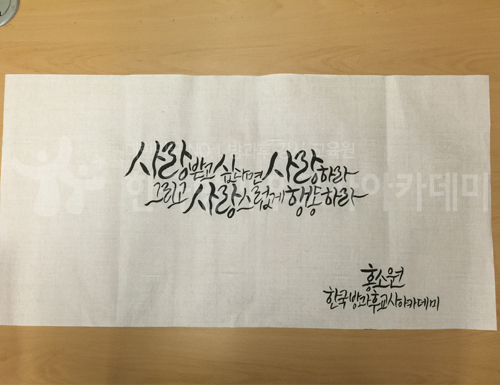 사랑받고 싶다면 사랑하라
그리고 사랑스럽게 행동하라
홍소원
한국방과후교사아카데미
아카데미